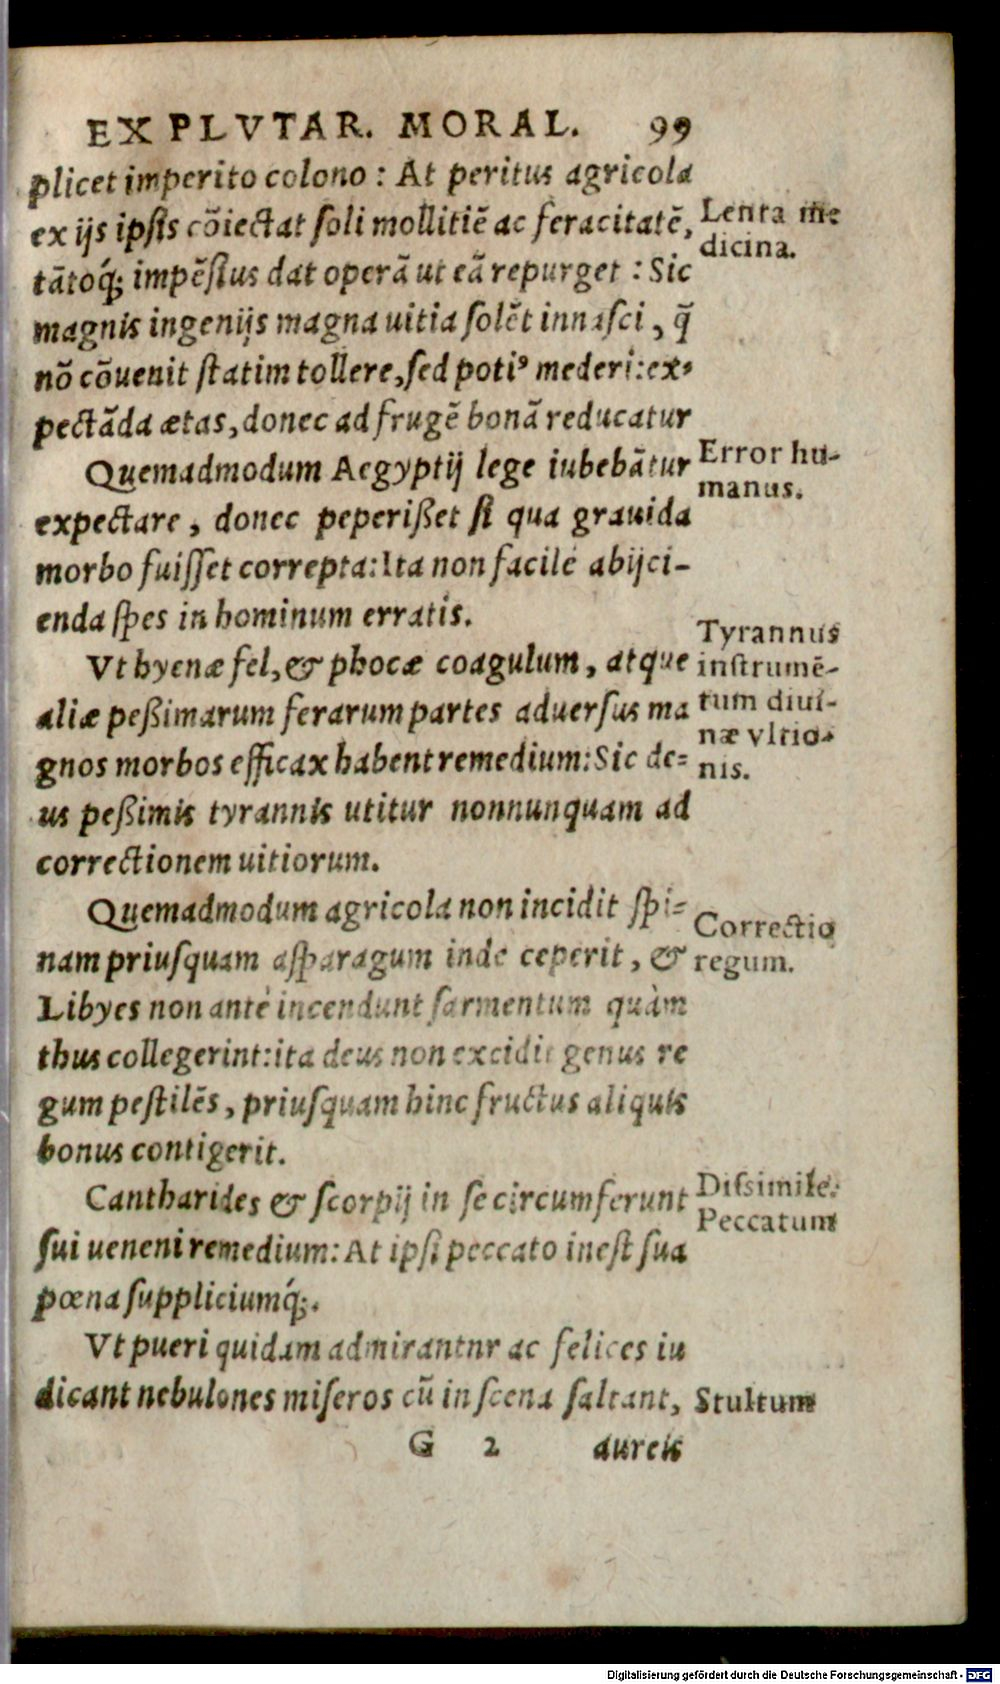 EX PLVTAR. MORAL. 99
plicet imperito colono : At peritus agricola
ex ijs ipſis cōiectat ſoli mollitiē ac feracitatē,
tātoq́; impēſius dat operā ut eā repurget : Sic
magnis ingenijs magna uitia ſolēt innaſci, q̄
nō cōuenit ſtatim tollere, ſed potiꝰ mederi: ex-
pectāda ætas, donec ad frugē bonā reducatur
Lenta me
dicina.
Quemadmodum Aegyptij lege iubebātur
expectare, donec peperißet ſi qua grauida
morbo fuiſſet correpta: Ita non facilè abijci-
enda ſpes in hominum erratis.
Error hu-
manus.
Vt hyenæ fel, & phocæ coagulum, atque
aliæ peßimarum ferarum partes aduerſus ma
gnos morbos efficax habent remedium: Sic de-
us peßimis tyrannis utitur nonnunquam ad
correctionem uitiorum.
Tyrannus
inſtrumē-
tum diui-
næ vltio-
nis.
Quemadmodum agricola non incidit ſpi-
nam priuſquam aſparagum inde ceperit, &
Libyes non antè incendunt ſarmentum quàm
thus collegerint: ita deus non excidit genus re
gum peſtilēs, priuſquam hinc fructus aliquis
bonus contigerit.
Correctio
regum.
Cantharides & ſcorpij in ſe circumferunt
ſui ueneni remedium: At ipſi peccato ineſt ſua
pœna ſuppliciumq́;.
Diſsimile.
Peccatum
Vt pueri quidam admirantnr ac felices iu
dicant nebulones miſeros cū in ſcena ſaltant,
Stultum
G 2 aureis
Digitalisierung gefördert durch die Deutsche Forschungsgemeinschaft - DFG